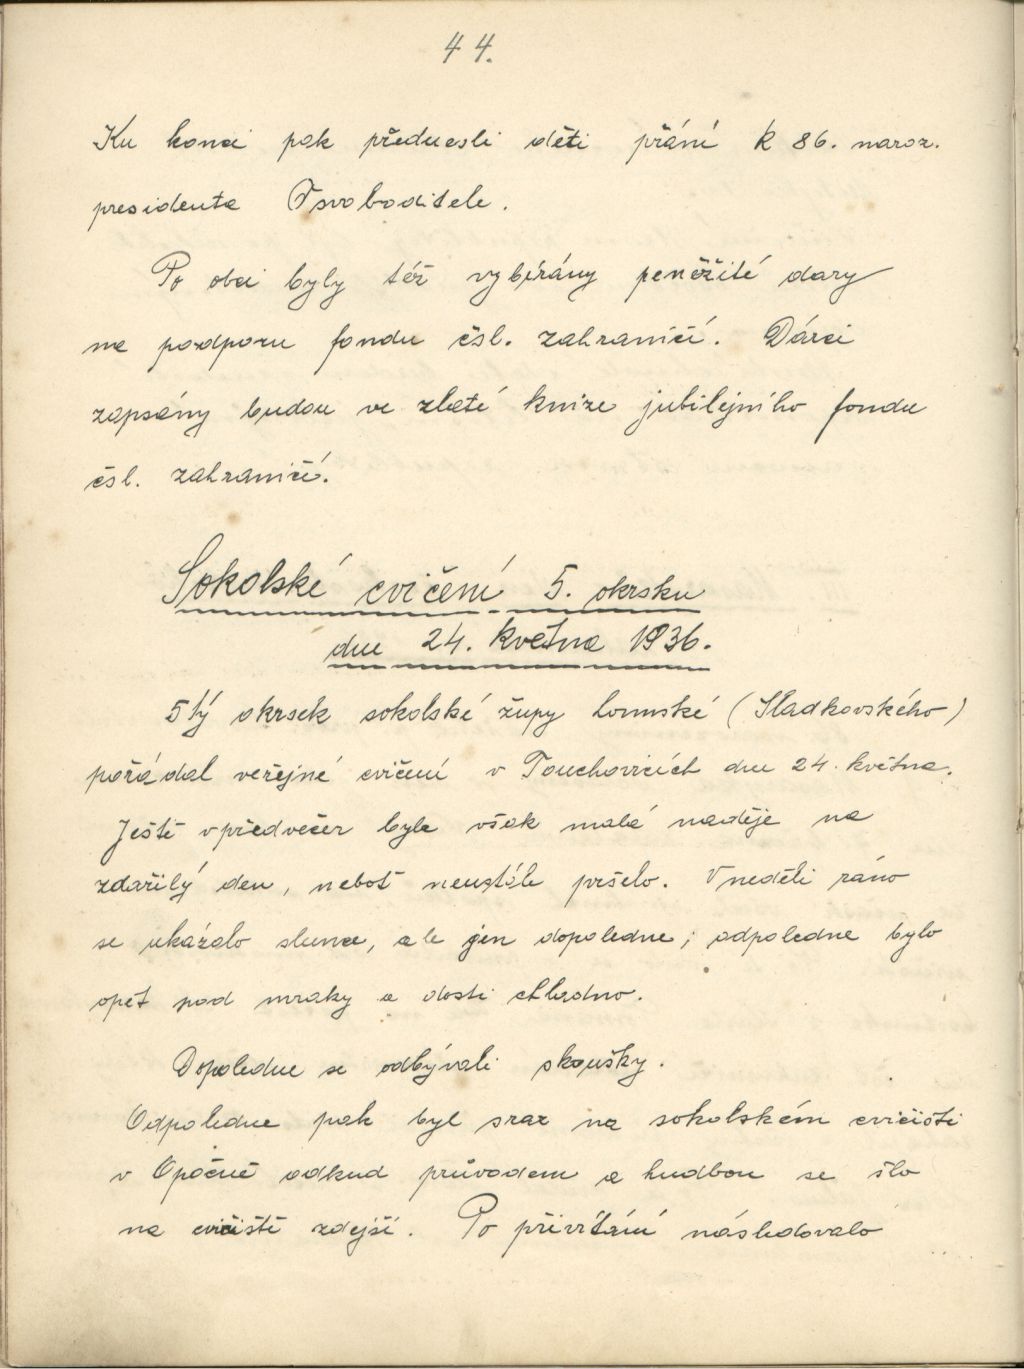 44.
Ku konci pak přednesli děti přání k 86. naroz.
presidenta Osvoboditele.
Po obci byly též vybírány peněžité dary
na podporu fondu čsl. zahraničí. Dárci
zapsány budou ve zlaté knize jubilejního fondu
čsl. zahraničí.
Sokolské cvičení 5. okrsku
dne 24. května 1936.
5tý okrsek sokolské župy lounské (Sladkovského)
pořádal veřejné cvičení v Touchovicích dne 24. května.
Ještě v předvečer byla však malá naděje na
zdařilý den, neboť neustále pršelo. V neděli ráno
se ukázalo slunce, ale jen dopoledne; odpoledne bylo
opět pod mraky a dosti chladno.
Dopoledne se odbývali skoušky.
Odpoledne pak byl sraz na sokolském cvičišti
v Opočně odkud průvodem a hudbou se šlo
na cvičiště zdejší. Po přivítání následovalo